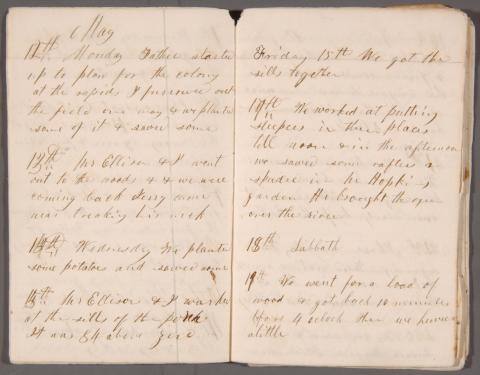 May
12th Monday Father started
up to plow for the colony
at the rapids I furrowed out
the field one way & we planted
some of it & sawed some
13th Mr Ellison & I went
out to the woods & & we were
coming back Jerry came
near breaking his neck
14th Wednesday We planted
some potatoes and sowed some
15th Mr Ellison & I worked
at the sills of the
It was 84 above zero
Friday 15th We got the
sills together
17th We worked at putting
sleepers in three places
till noon & in the afternoon
we sawed some rafters &
spaded in Mr Hopkins
garden He brought the oxen
over the river
18th Sabbath
19th We went for a load of
wood & got back 10 minutes
before 4 oclock then we hewed
a little